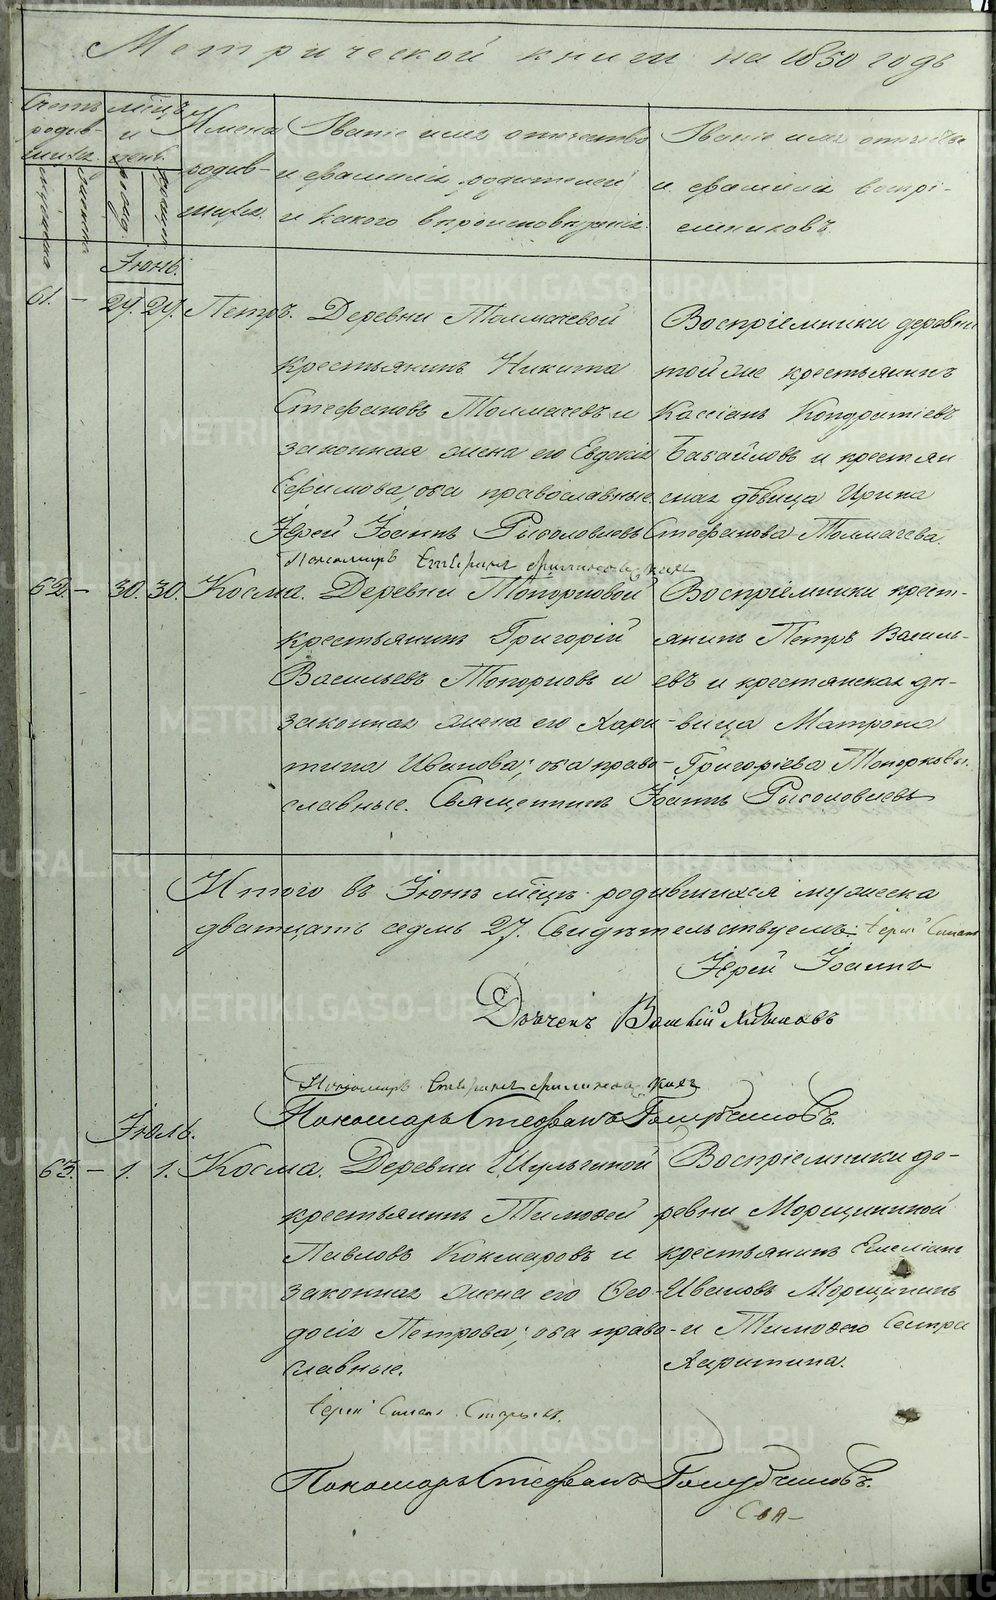 Метрической книги на 1850 годъ
Счетъ родив-шихся.
мѣсяцъ и день.
Имена родив-шихся.
Званіе имя отчество и фамилія родителей и какого вѣроисповѣданія.
Званіе имя отчество и фамилія воспрі-емниковъ.
Іюнь.
61. – 29. 29. Петръ. Деревни Толмачевой
крестьянинъ Никита
Стефановъ Толмачевъ и
законная жена его Евдокія
Ефимова, оба православные
Воспріемники деревни
той же крестьянинъ
Кассіанъ Кондратіевъ
Бабайловъ и крестьян
ская дѣвица Ирина
Стефанова Толмачева.
Іерей Іоаннъ
Пономарь
62. – 30. 30. Косма. Деревни Топорковой
крестьянинъ Григорій
Васильевъ Топорковъ и
законная жена его Хари-
тина Иванова; оба право-
славные. Священникъ Іоаннъ
Воспріемники крест-
янинъ Петръ Василь-
евъ и крестьянская дѣ-
вица Матрона
Григоріева Топоркова.
Итого въ Іюнѣ мѣсцѣ родившихся мужеска
дватцать седмь 27. Свидѣтельствуемъ: Іерей Симеонъ
Іерей Іоаннъ
Дьячекъ
Пономарь
Пономарь Стефанъ Голубчиковъ.
Іюль.
63. – 1. 1. Косма. Деревни Шульгиной
крестьянинъ Тимофей
Павловъ Кокшаровъ и
законная жена его Фео-
досія Петрова; оба право-
славные.
Воспріемники де-
ревни Морщининой
крестьянинъ Емеліанъ
Ивановъ Морщининъ
и Тимофею Сестра
Харитина.
Іерей Симеонъ
Пономарь Стефанъ Голубчиковъ.
Свя-
METRIKI.GASO-URAL.RU